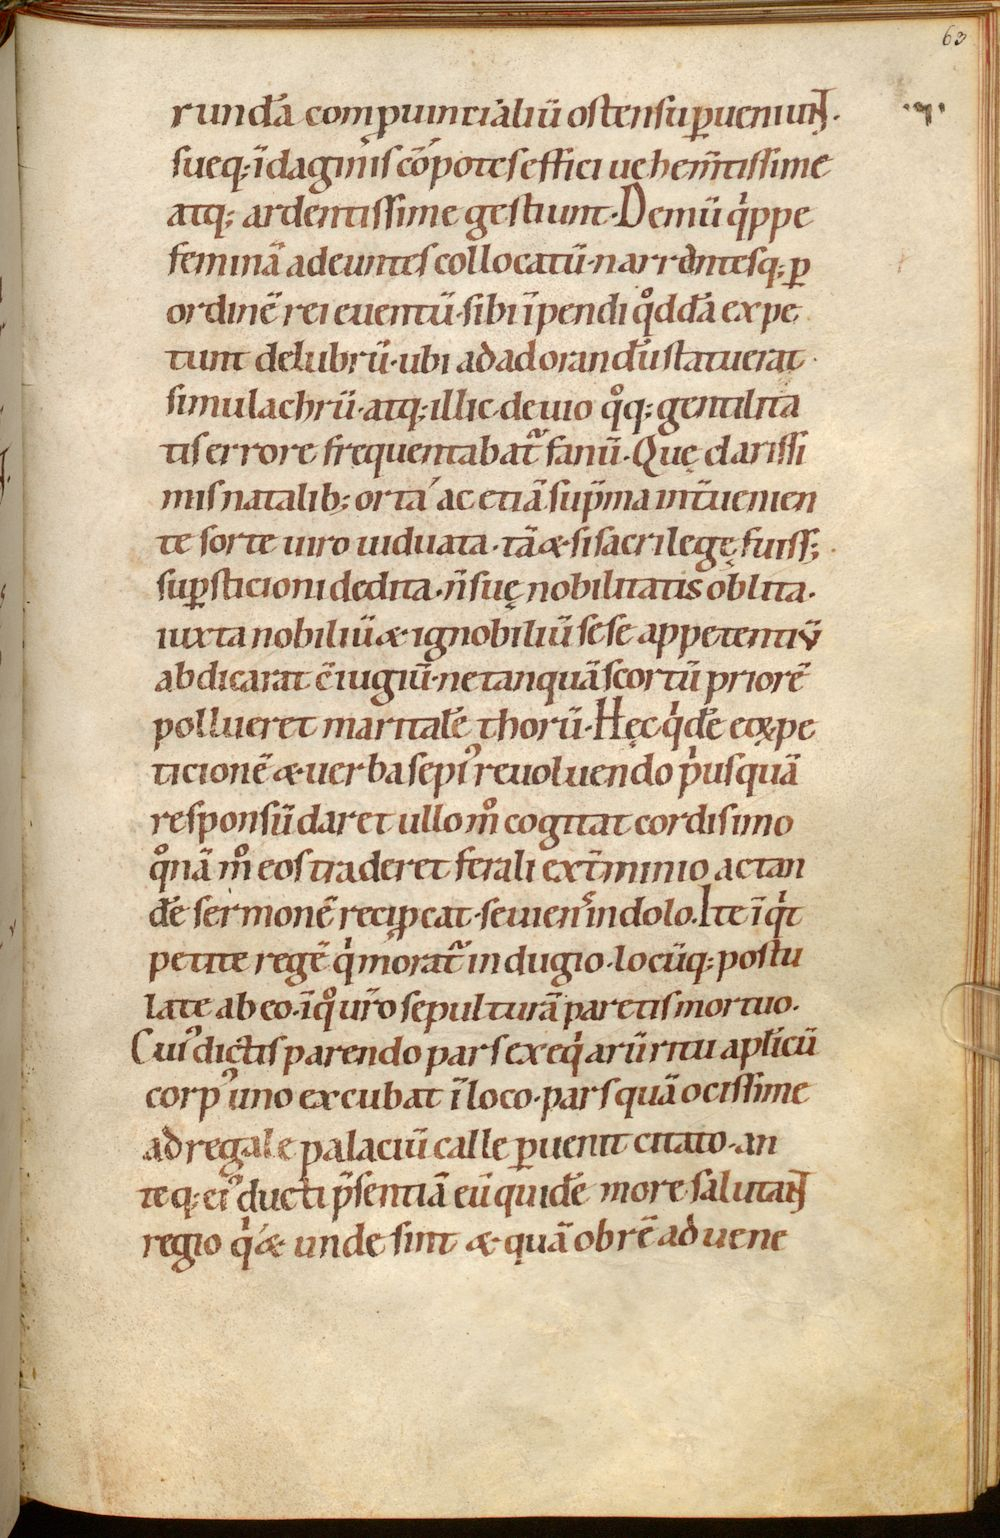 63
rundā comꝓuincialiū ostensu ꝑueniunt.
sueq; īdaginis cōpotes effici uehem̄tissime
atq; ardentissime gestiunt. Demū qͥppe
feminā adeuntes collocatū. narrantesq; ꝑ
ordinē rei euentū. sibi īpendi qͦddā expe
tunt delubrū. ubi ad adorandū statuerat
simulachrū. atq; illic deuio qͦq; gentilita
tis errore frequentabat᷑ fanū. Quę clarissi
mis natalib; orta ac etiā sup̄ma int̄uenien
te sorte uiro uiduata. tā & si sacrilegę fuiss;
suꝑsticioni dedita. n̄ suę nobilitatis oblita.
iuxta nobiliū & ignobiliū sese appetentiū
abdicarat c̄iugiū. ne tanquā scortū priorē
pollueret maritalē thorū. Hęc qͥdē eoꝝ pe
ticionē & uerba sepiꝰ reuoluendo pͥusquā
responsū daret ullomͦ cogitat cordis imo
qͦnā mͦ eos traderet ferali ext̄minio actan
dē sermonē recipeat. seuiens in dolo. Ite īqͥt
petite regē qͥ morat᷑ in dugio. locūq; postu
late ab eo. ī qͦ ur̄o sepulturā paretis mortuo.
Cuiꝰ dictis parendo pars exeqͥarū ritu aplicū
corpꝰ uno excubat ī loco. pars quā ocissime
ad regale palaciū calle ꝑuenit citato. an
teq; eiꝰ ducti p̄sentiā eū quidē more salutant
regio qͥ & unde sint & quā ob rē aduene